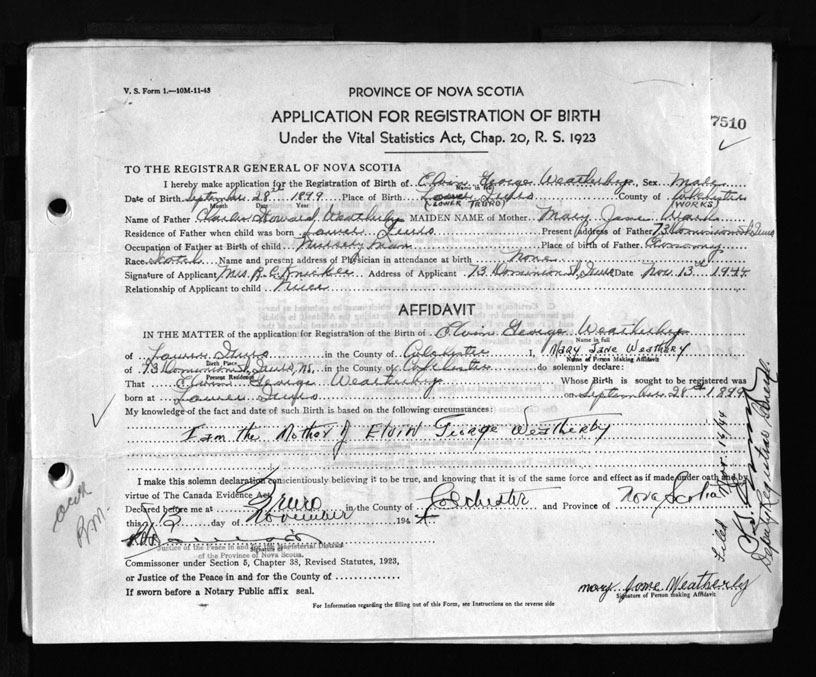 V. S. Form 1.—10M-11-43
PROVINCE OF NOVA SCOTIA
APPLICATION FOR REGISTRATION OF BIRTH
Under the Vital Statistics Act, Chap. 20, R. S. 1923
7510
TO THE REGISTRAR GENERAL OF NOVA SCOTIA
I hereby make application for the Registration of Birth of Elvin George Weatherby, Sex Male
Name in full
Date of Birth September 28th 1899 Place of Birth Lower Truro County of Colchester
Month Day Year (LOWER TRURO) (WORKS)
Name of Father Charles Howard Weatherby MAIDEN NAME of Mother Mary Jane
Residence of Father when child was born Lower Truro Present Address of Father 73 Dominion St, Truro
Occupation of Father at Birth of child Nursery Man Place of birth of Father
Race Scotch Name and present address of Physician in attendance at birth none
Signature of Applicant Mrs. R. E. Address of Applicant 73 Dominion St, Truro Date Nov. 13th 1944
Relationship of Applicant to child Niece
AFFIDAVIT
IN THE MATTER of the application for Registration of the Birth of Elvin George Weatherby
Name in full
of Lower Truro in the County of Colchester I, MARY JANE WEATHERBY
Birth Place Name of Person Making Affidavit
of 73 Dominion St, Truro, N.S. in the County of Colchester do solemnly declare:
Present Residence
That Elvin George Weatherby Whose Birth is sought to be registered was
born at Lower Truro on September 28th 1899
My knowledge of the fact and date of such Birth is based on the following circumstances:
I am the Mother of Elvin George Weatherby
I make this solemn declaration conscientiously believing it to be true, and knowing that it is of the same force and effect as if made under oath and by
virtue of The Canada Evidence Act.
Declared before me at Truro in the County of Colchester and Province of Nova Scotia
this 13 day of November 1944
Justice of the Peace in and for the Magisterial District
of the Province of Nova Scotia.
Commissioner under Section 5, Chapter 38, Revised Statutes, 1923,
or Justice of the Peace in and for the County of
If sworn before a Notary Public affix seal.
Mary Jane Weatherby
Signature of Person Making Affidavit
For Information regarding the filling out of this Form, see Instructions on the reverse side
Filed Nov. 16/44
Deputy Registrar General